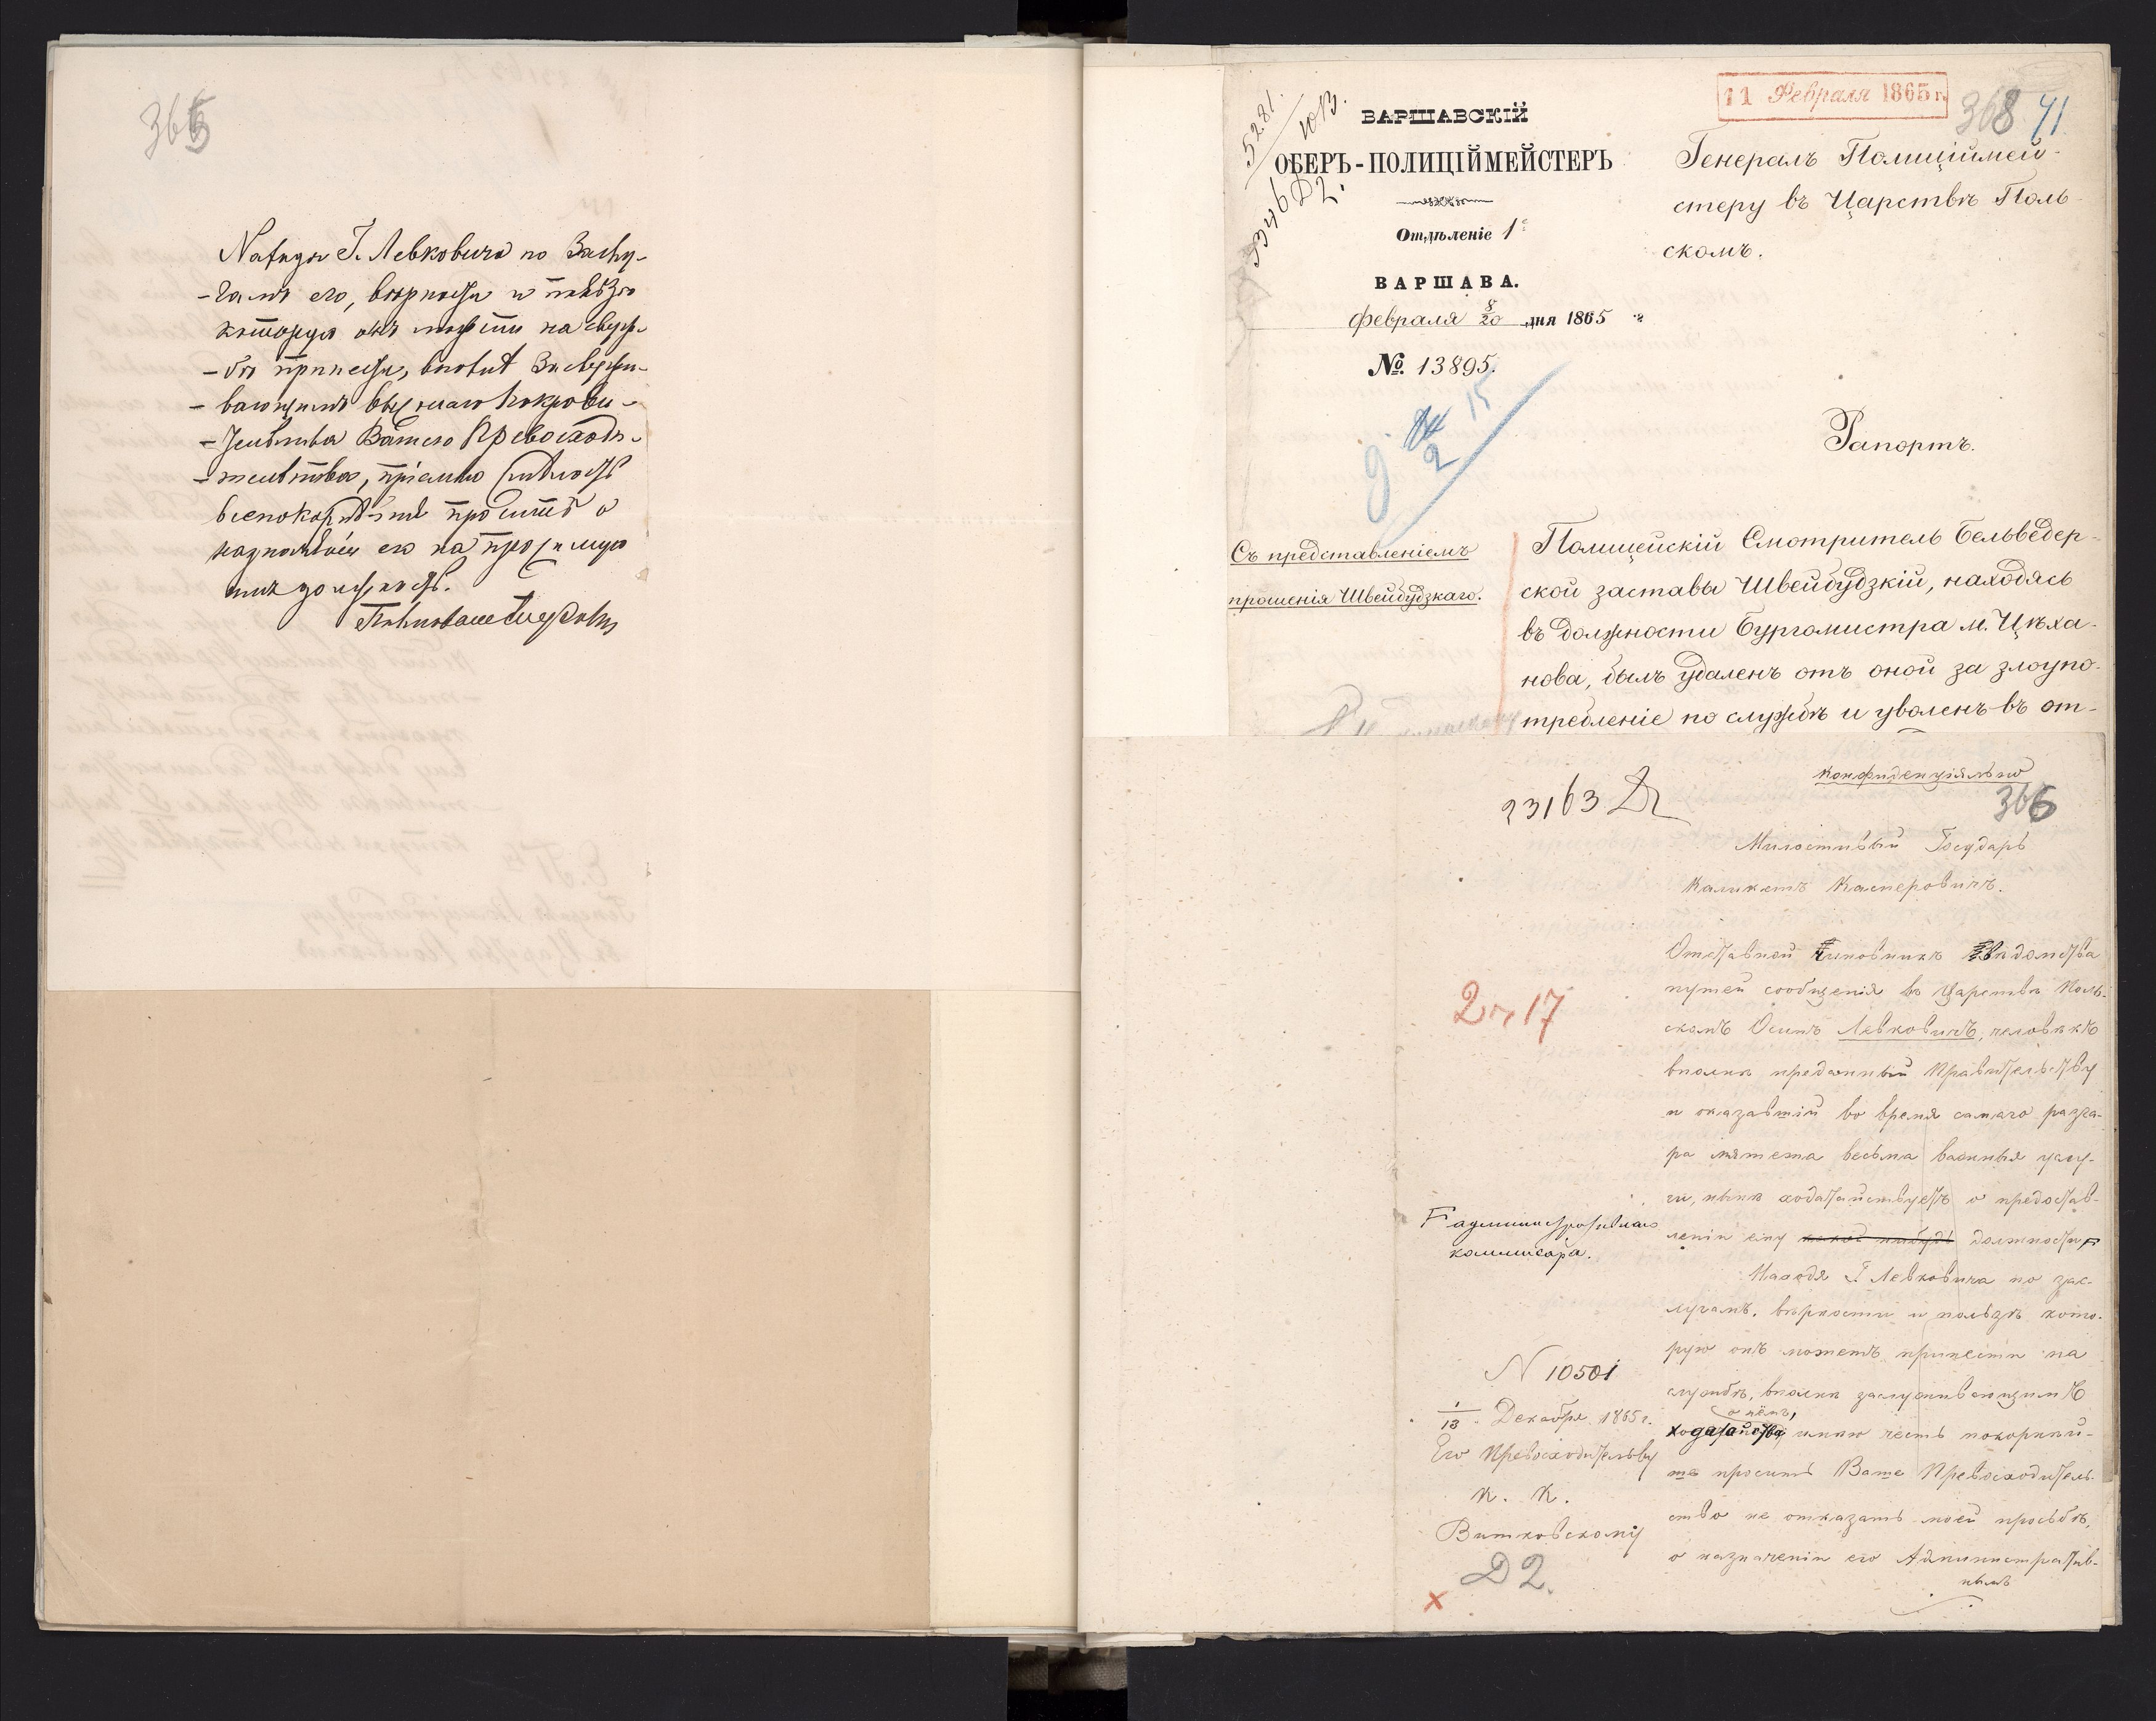 365
Находя Г. Левковича по Заслу-
-гамъ его, вѣрности и пользѣ
которую онъ можетъ на служ-
-бѣ принести, вполнѣ Заслужи-
-вающимъ
-тельства Вашего Превосходи-
-тельства, пріемлю смѣлость
всепокорнѣйше просить о
назначеніи его на просимую
имъ должность.
11 Февраля 1865 г.
368 71
5281
ВАРШАВСКІЙ
ОБЕРЪ-ПОЛИЦІЙМЕЙСТЕРЪ
Отдѣленіе 1е
ВАРШАВА.
Февраля 8/20 дня 1865
№ 13895.
Генералъ Полиціймей-
стеру въ Царствѣ Поль-
скомъ.
Рапортъ.
Съ представленіемъ
прошенія Швейбудзкаго.
Полицейскій Смотритель Бельведер-
ской заставы Швейбудзкій, находясь
въ должности Бургомистра м. Цѣха-
нова, былъ удаленъ отъ оной за злоупо-
требленіе по службѣ и уволенъ въ от-
Конфиденціяльно
366
23163
Милостивый Государь
Каликстъ Касперовичъ.
Отставной Чиновникъ Вѣдомства
путей сообщенія въ Царствѣ Поль-
скомъ Осипъ Левковичъ, человѣкъ
вполнѣ преданный Правительству
и оказавшій во время самаго разга-
ра мятежа весьма важныя услу-
ги, нынѣ ходатайствуетъ о предостав-
леніи ему какой нибудь должности
административнаго
коммисара.
Находя Г. Левковича по зас-
лугамъ, вѣрности и пользѣ кото-
рую онъ можетъ принести на
службѣ, вполнѣ заслуживающимъ
о нёмъ,
ходатайства имѣю честь покорнѣй-
ше просить Ваше Превосходитель-
ство не отказать моей просьбѣ,
о назначеніи его Административ-
нымъ
N 10501
1/13 Декабря 1865 г.
Его Превосходительству
К. К.
Витковскому
Д 2.